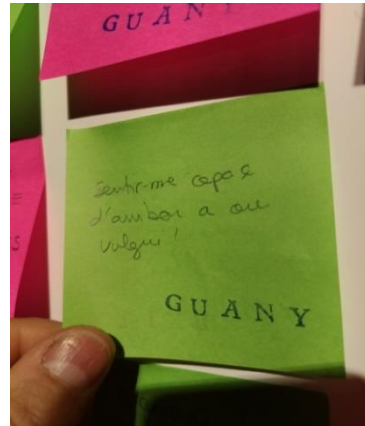 GUANY
Sentir-me capaç
d'arribar a on
vulgui!
GUANY